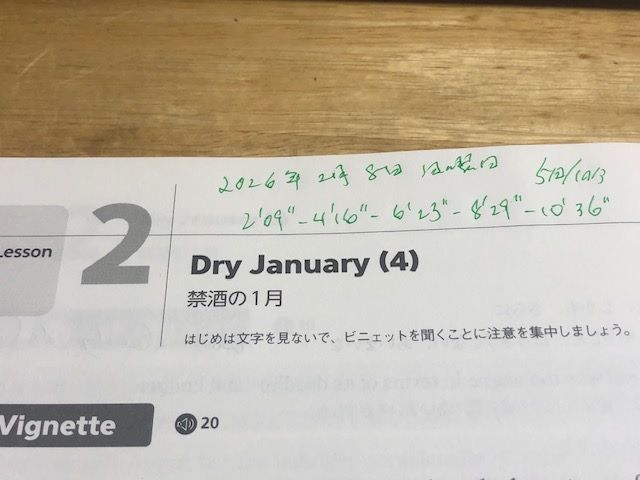 2026年 2月 8日 日曜日 5回/1013
2'09" - 4'16" - 6'23" - 8'29" - 10'36"
Lesson
2
Dry January (4)
禁酒の1月
はじめは文字を見ないで、ビニェットを聞くことに注意を集中しましょう。
Vignette
20